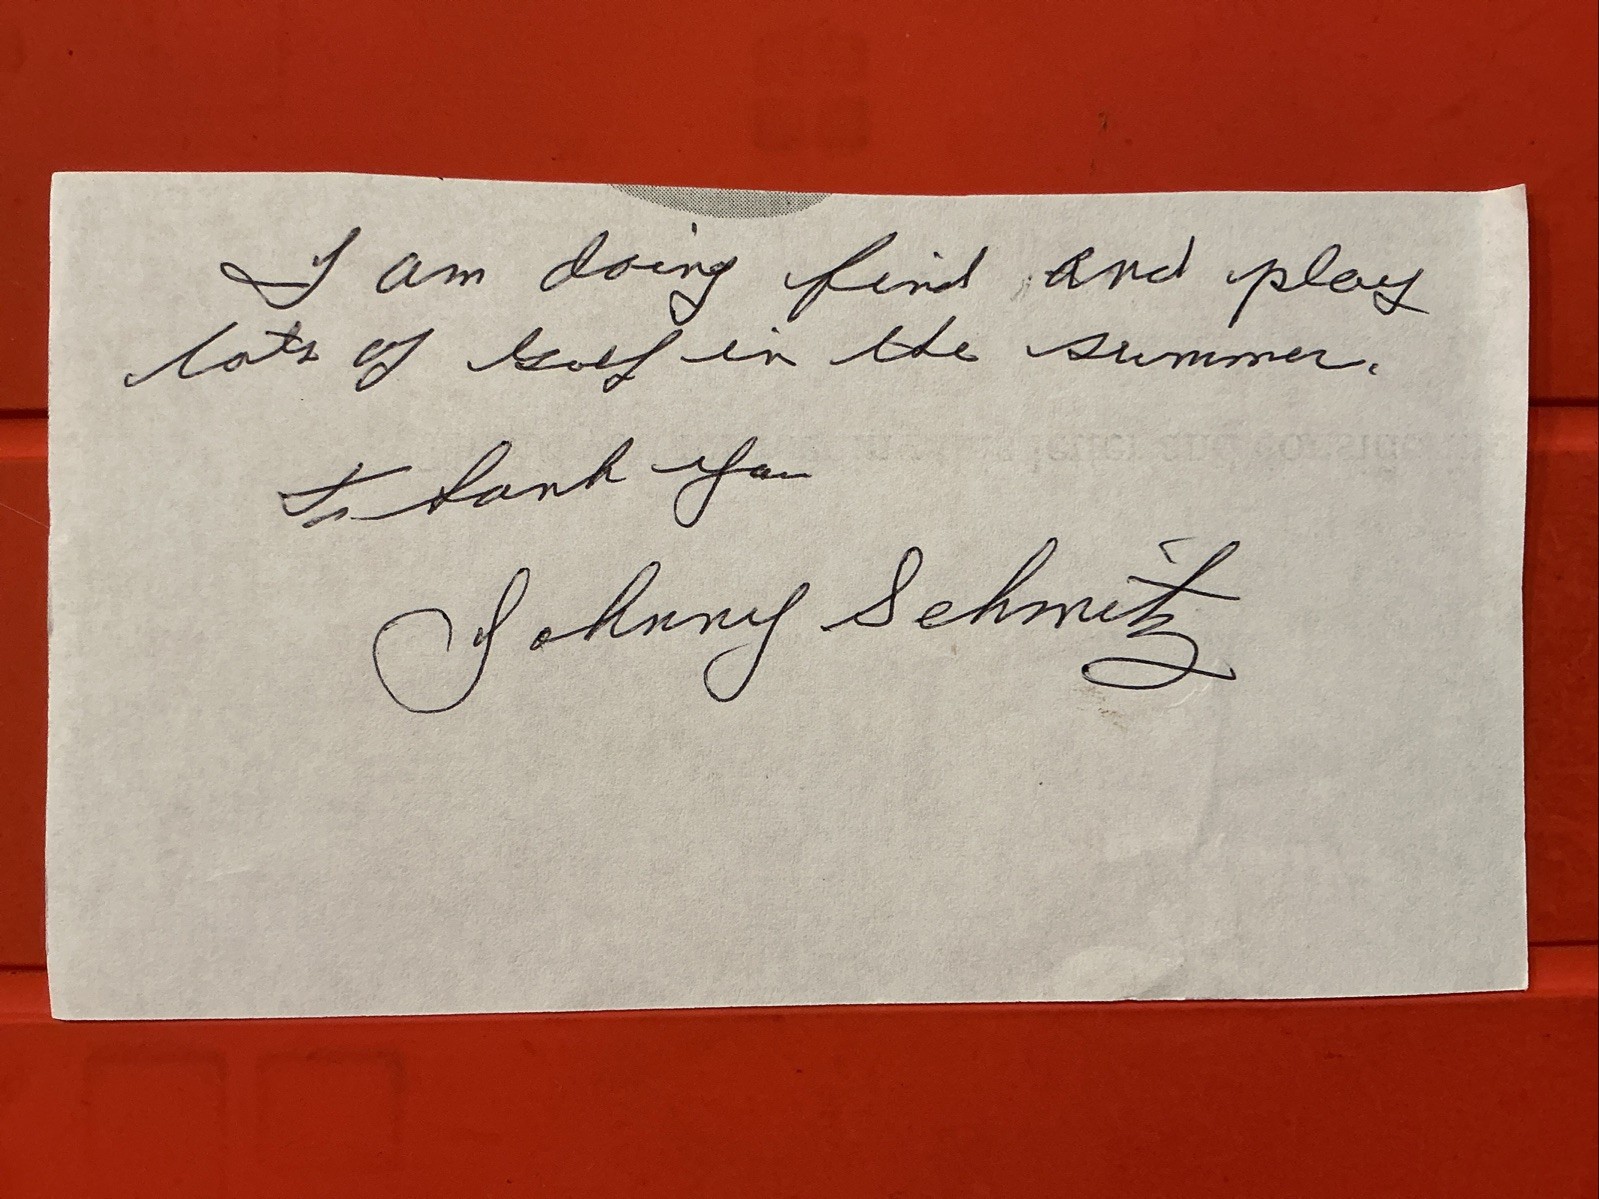 I am doing find and play
lots of golf in the summer.
thank you
Johnny Schmitz